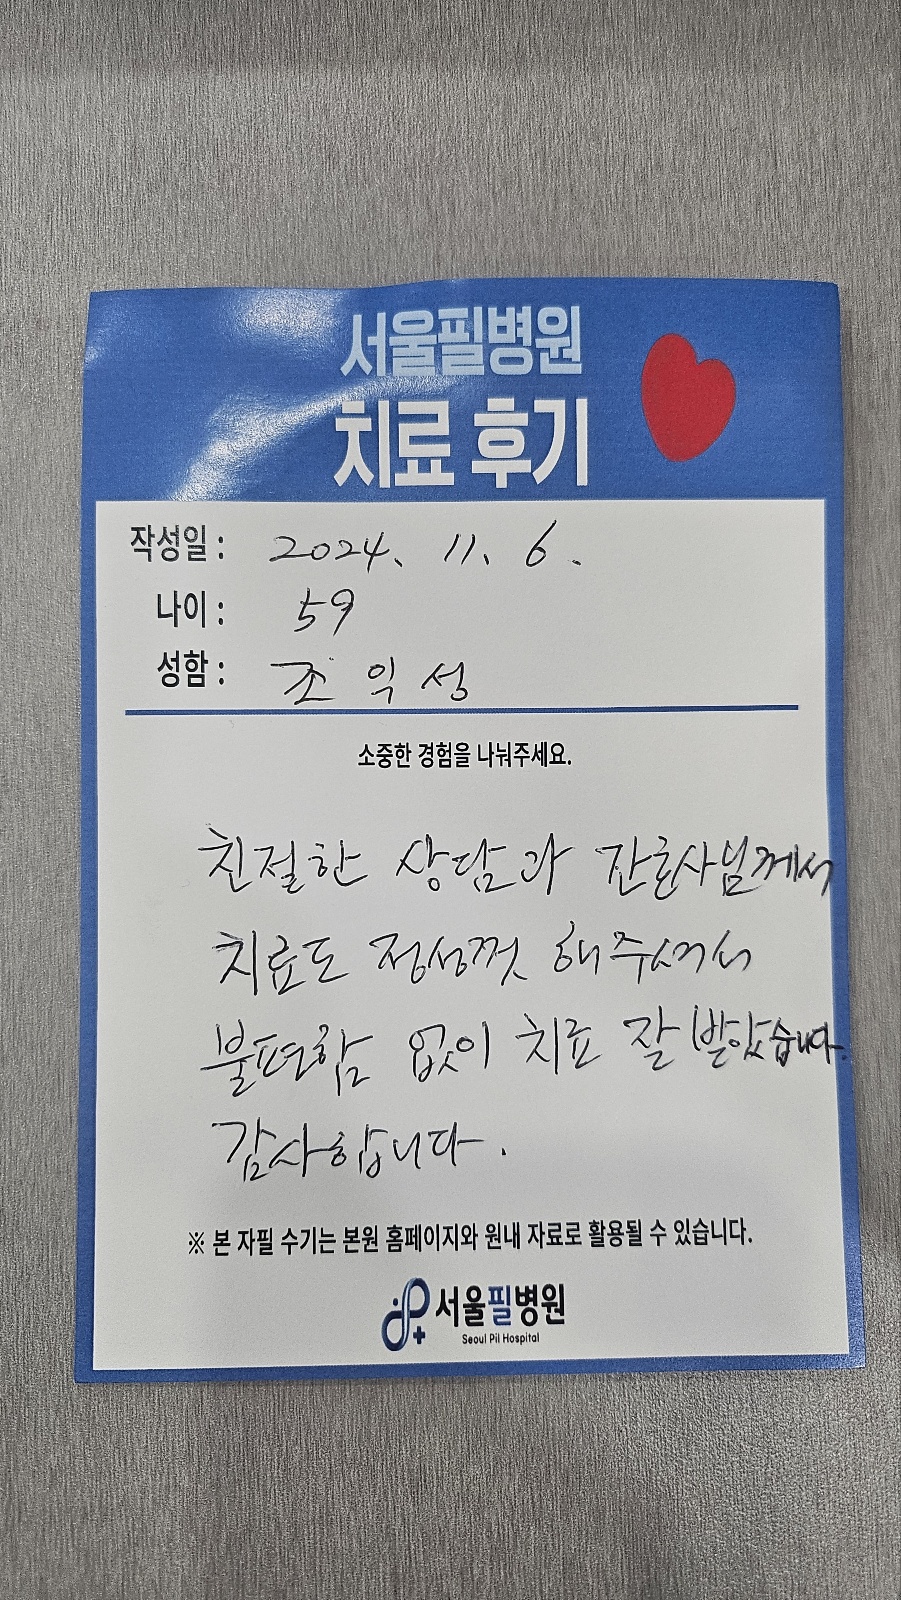 서울필병원
치료 후기
작성일 : 2024. 11. 6.
나이 : 59
성함 : 조익성
소중한 경험을 나눠주세요.
친절한 상담과 간호사님께서
치료도 정성껏 해주셔서
불편함 없이 치료 잘 받았습니다.
감사합니다.
※ 본 자필 수기는 본원 홈페이지와 원내 자료로 활용될 수 있습니다.
서울필병원
Seoul Pil Hospital